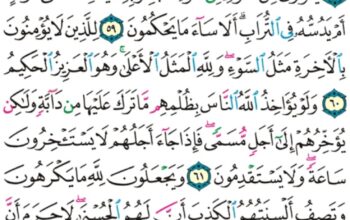 أَمْ يَدُسُّهُۥ فِى ٱلتُّرَابِ ۗ أَلَا سَآءَ مَا يَحْكُمُونَ ٥٩ لِلَّذِينَ لَا يُؤْمِنُونَ
بِٱلْـَٔاخِرَةِ مَثَلُ ٱلسَّوْءِ ۖ وَلِلَّهِ ٱلْمَثَلُ ٱلْأَعْلَىٰ ۚ وَهُوَ ٱلْعَزِيزُ ٱلْحَكِيمُ
٦٠ وَلَوْ يُؤَاخِذُ ٱللَّهُ ٱلنَّاسَ بِظُلْمِهِم مَّا تَرَكَ عَلَيْهَا مِن دَآبَّةٍ وَلَـٰكِن
يُؤَخِّرُهُمْ إِلَىٰٓ أَجَلٍ مُّسَمًّى ۖ فَإِذَا جَآءَ أَجَلُهُمْ لَا يَسْتَـْٔخِرُونَ
سَاعَةً ۖ وَلَا يَسْتَقْدِمُونَ ٦١ وَيَجْعَلُونَ لِلَّهِ مَا يَكْرَهُونَ
وَتَصِفُ أَلْسِنَتُهُمُ ٱلْكَذِبَ أَنَّ لَهُمُ ٱلْحُسْنَىٰ ۖ لَا جَرَمَ أَنَّ